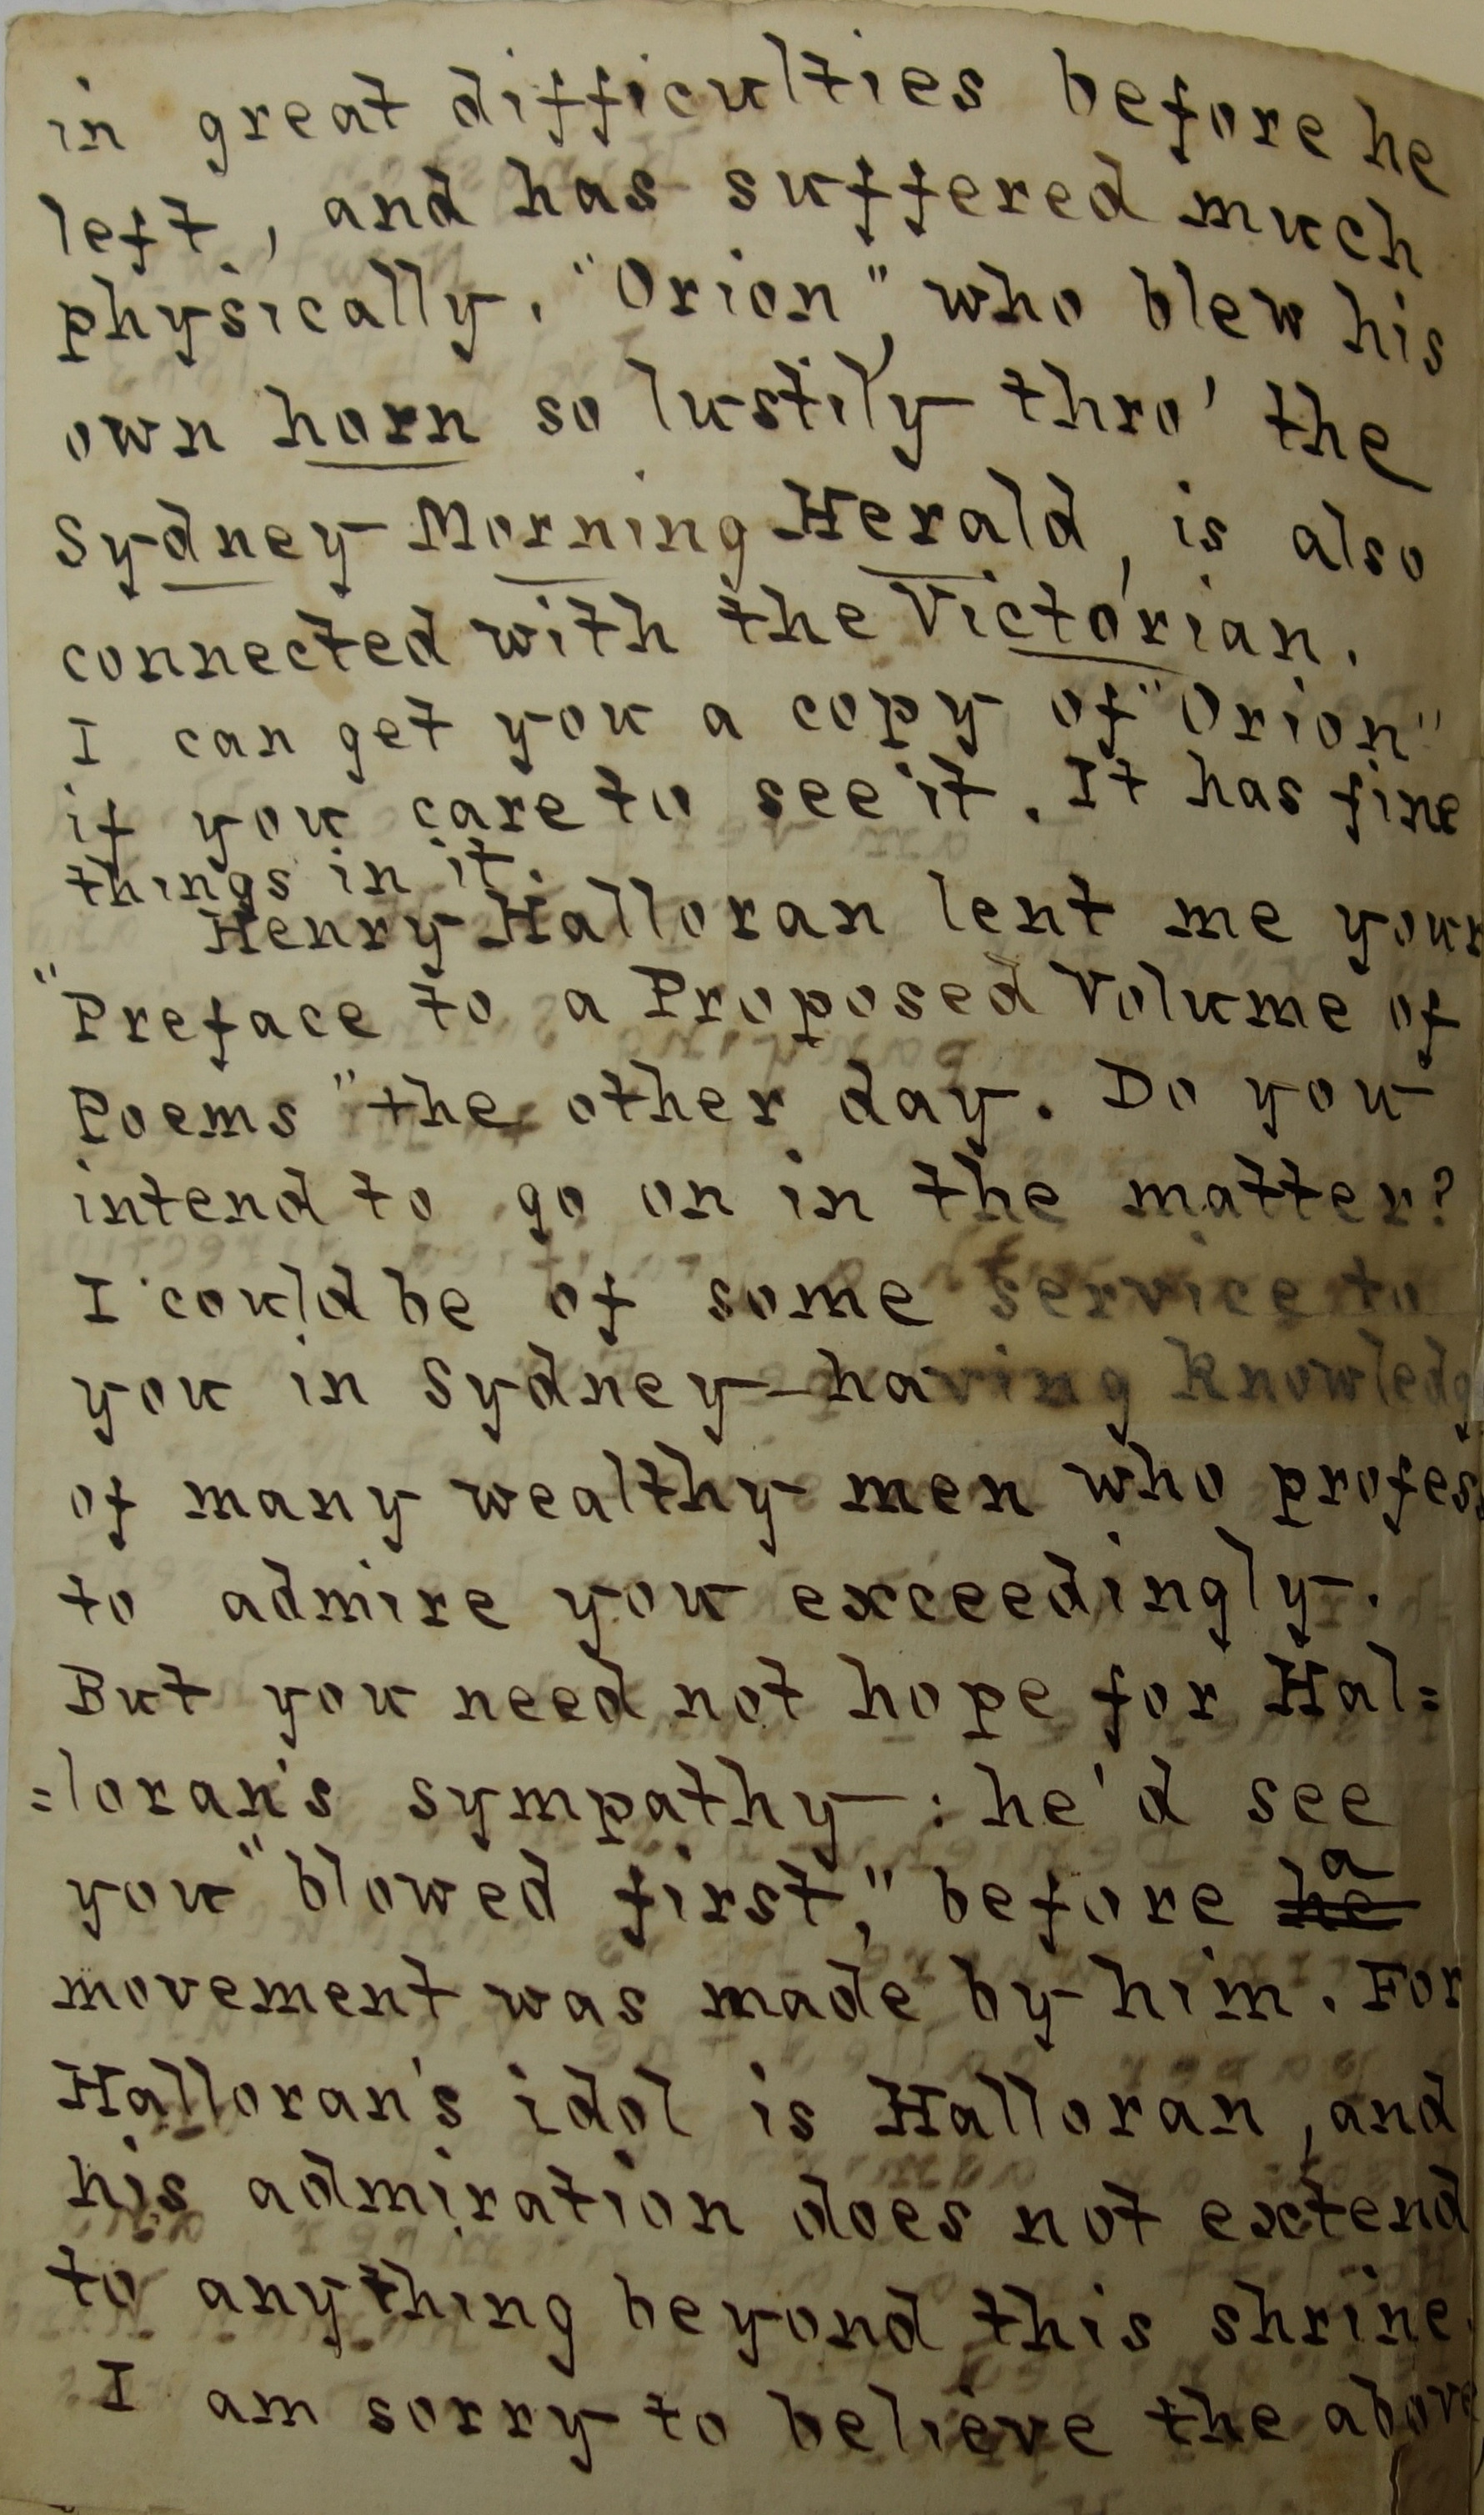 in great difficulties before he
left, and has suffered much
physically. "Orion", who blew his
own horn so lustily thro' the
Sydney Morning Herald, is also
connected with the Victorian.
I can get you a copy of "Orion"
if you care to see it. It has fine
things in it.
Henry Halloran lent me your
"Preface to a Proposed Volume of
Poems" the other day. Do you
intend to go on in the matter?
I could be of some service to
you in Sydney—having knowledg
of many wealthy men who profess
to admire you exceedingly.
But you need not hope for Hal=
=loran's sympathy: he'd see
you "blowed first," before he a
movement was made by him. For
Halloran's idol is Halloran, and
his admiration does not extend
to anything beyond this shrine.
I am sorry to believe the above